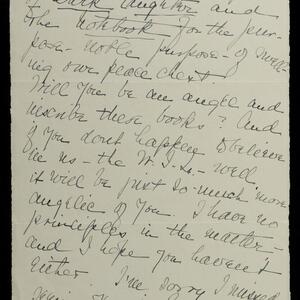 Dark Laughter and
the notebook for the pur-
pose - noble purpose - of swell-
ing our peace chest.
Will you be an angel and
inscribe these books? And
if you don't happen to believe
in us - the W.I.L. - well,
it will be just so much more
angelic of you. I have no
principles in the matter -
and I hope you haven't
either. I'm sorry I missed